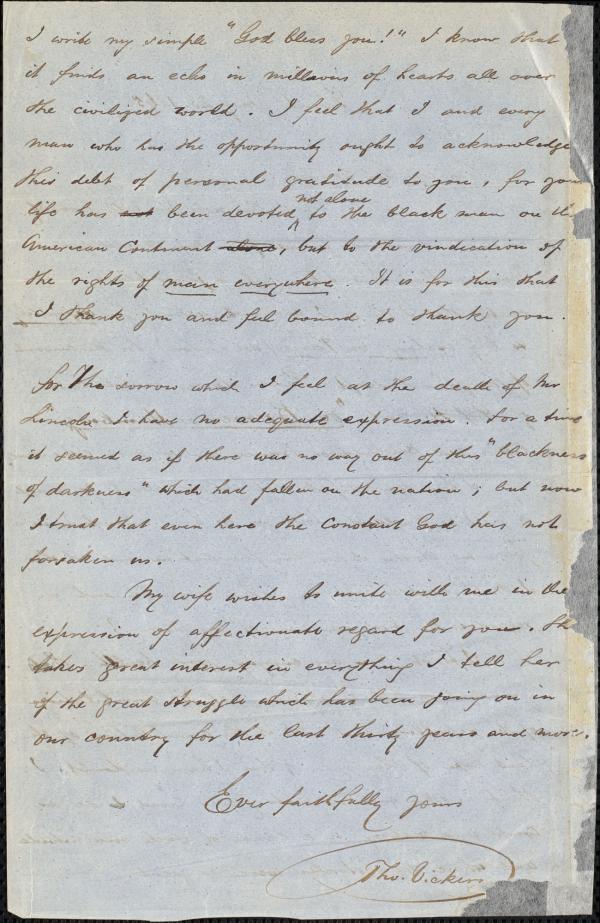 I write my simple "God bless you!" I know that
it finds an echo in millions of hearts all over
the civilized world. I feel that I and every
man who has the opportunity ought to acknowledge
this debt of personal gratitude to you, for your
not alone
life has not been devoted ^ to the black man on the
American Continent alone, but to the vindication of
the rights of man everywhere. It is for this that
I thank you and feel bound to thank you.
For The sorrow which I feel at the death of Mr
Lincoln I have no adequate expression. For a time
it seemed as if there was no way out of this "blackness
of darkness" which had fallen on the nation; but now
I trust that even here the Constant God has not
forsaken us.
My wife wishes to unite with me in the
expression of affectionate regard for you. Sh
takes great interest in everything I tell her
of the great struggle which has been going on in
our country for the last thirty years and more.
Ever faithfully yours
Tho. Vickers